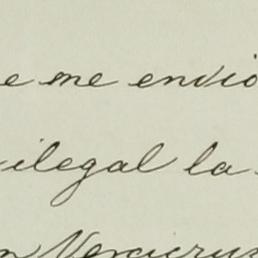 e me envió
ilegal la
n Veracruz